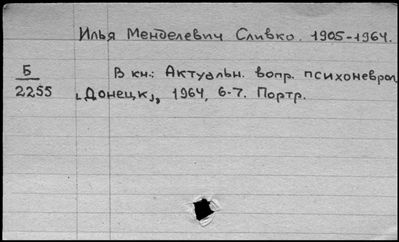 Илья Менделевич Сливко. 1905-1964.
Б
2255
В кн.: Актуальн. вопр. психоневрол
[Донецк], 1964, 6-7. Портр.